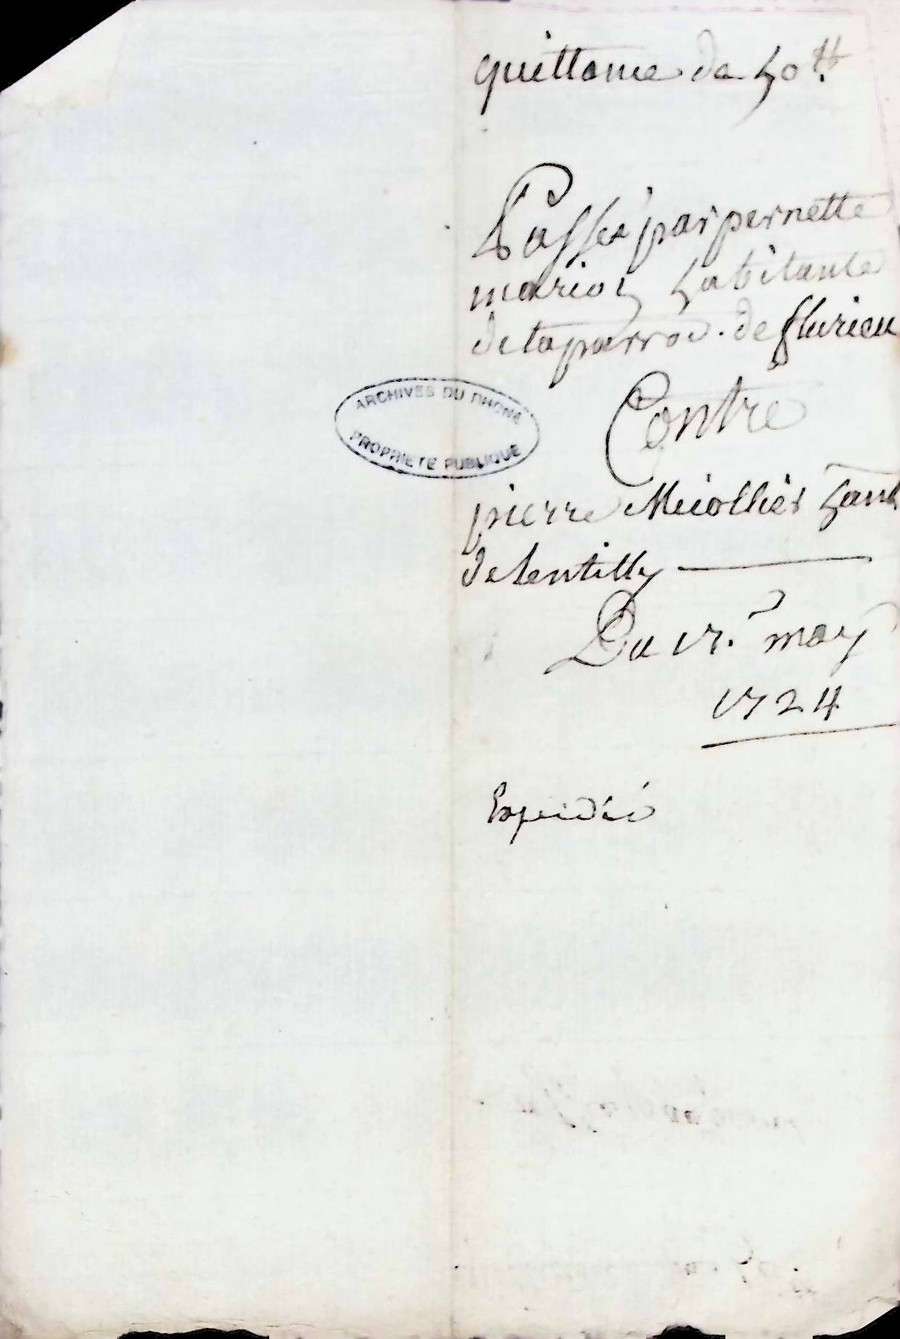 quittance de 50 ₶.
Passée par pernette
marion habitante
de la parroi. de fleurieu
ARCHIVES DU RHONE
PROPRIETE PUBLIQUE
Contre
pierre Micollier hant
de Lentilly
Du 17.e may
1724
Expedié